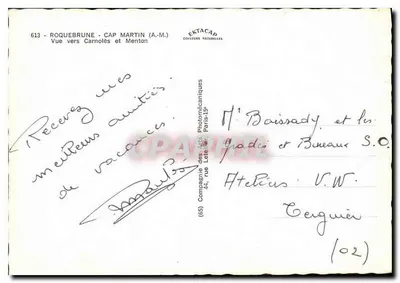 613 - ROQUEBRUNE - CAP MARTIN (A.-M.)
Vue vers Carnolès et Menton
EKTACAP
COULEURS NATURELLES
Recevez mes
meilleures amitiés
de vacances.
(65) Compagnie des Photomécaniques
44, rue Paris-15e
Carte-Postale
Mr Boissady et les
grades et Bureaux S.O.
Ateliers V.W.
Tergnier
(02)